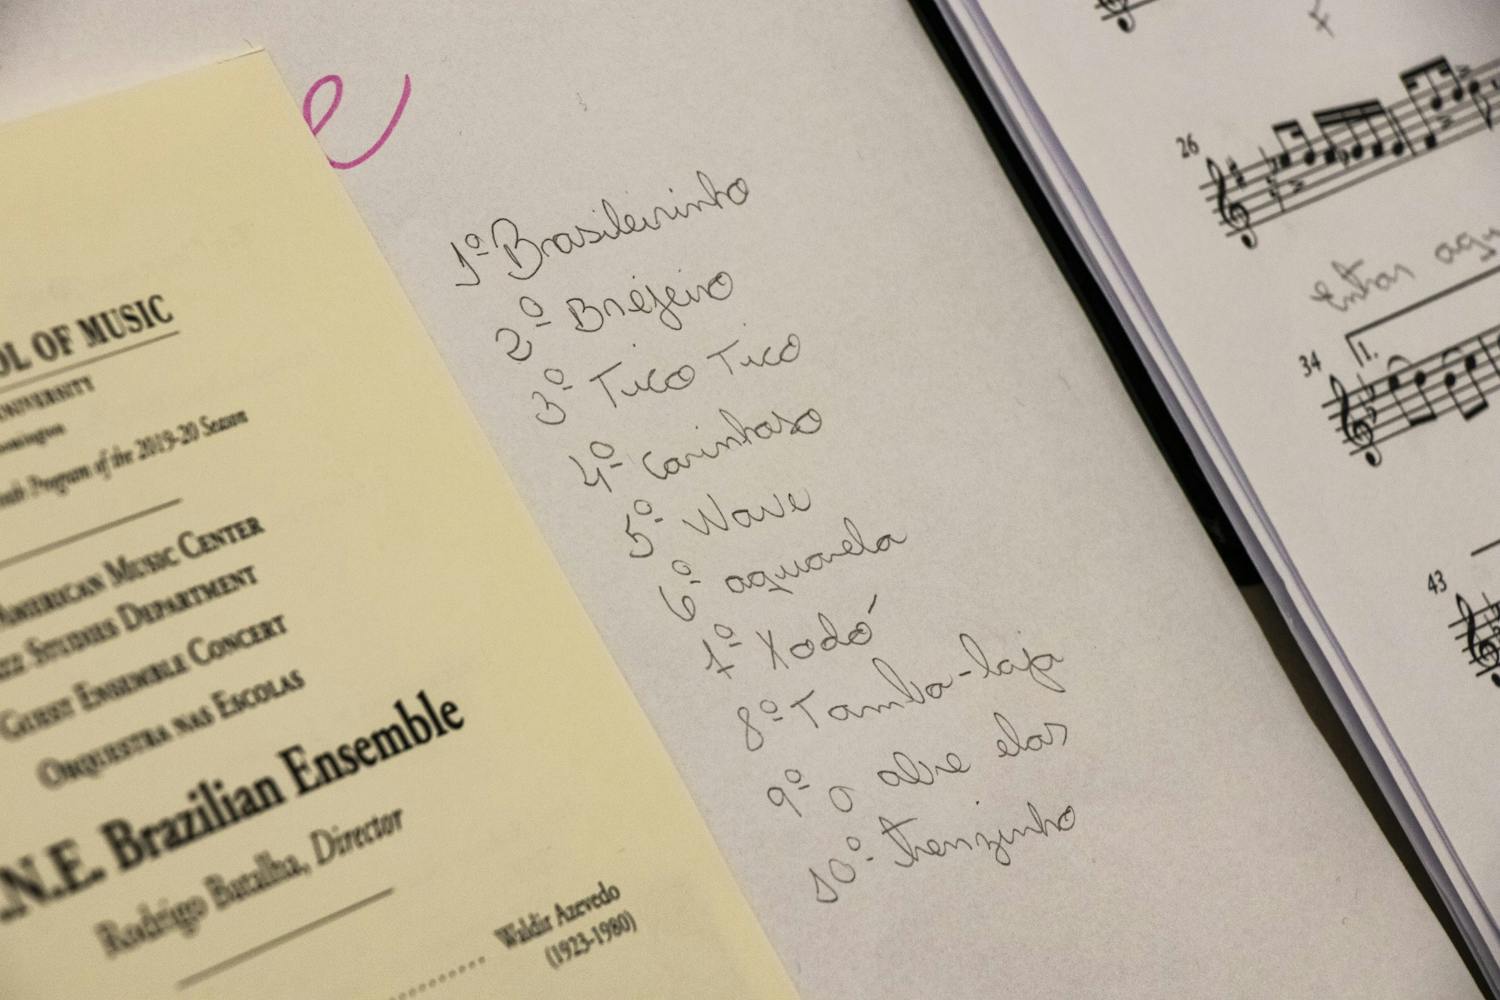 OL OF MUSIC
UNIVERSITY
Program of the 2019-20 Season
AMERICAN MUSIC CENTER
STUDIES DEPARTMENT
GUEST ENSEMBLE CONCERT
ORQUESTRA NAS ESCOLAS
.N.E. Brazilian Ensemble
Rodrigo Batalha, Director
Waldir Azevedo
(1923-1980)
e
1º Brasileirinho
2º Brejeiro
3º Tico Tico
4º Carinhoso
5º Wave
6º aquarela
7º Xodó
8º Tamba-laja
9º O abre elas
10º trenzinho
26
Entrar aqu
34
1.
43